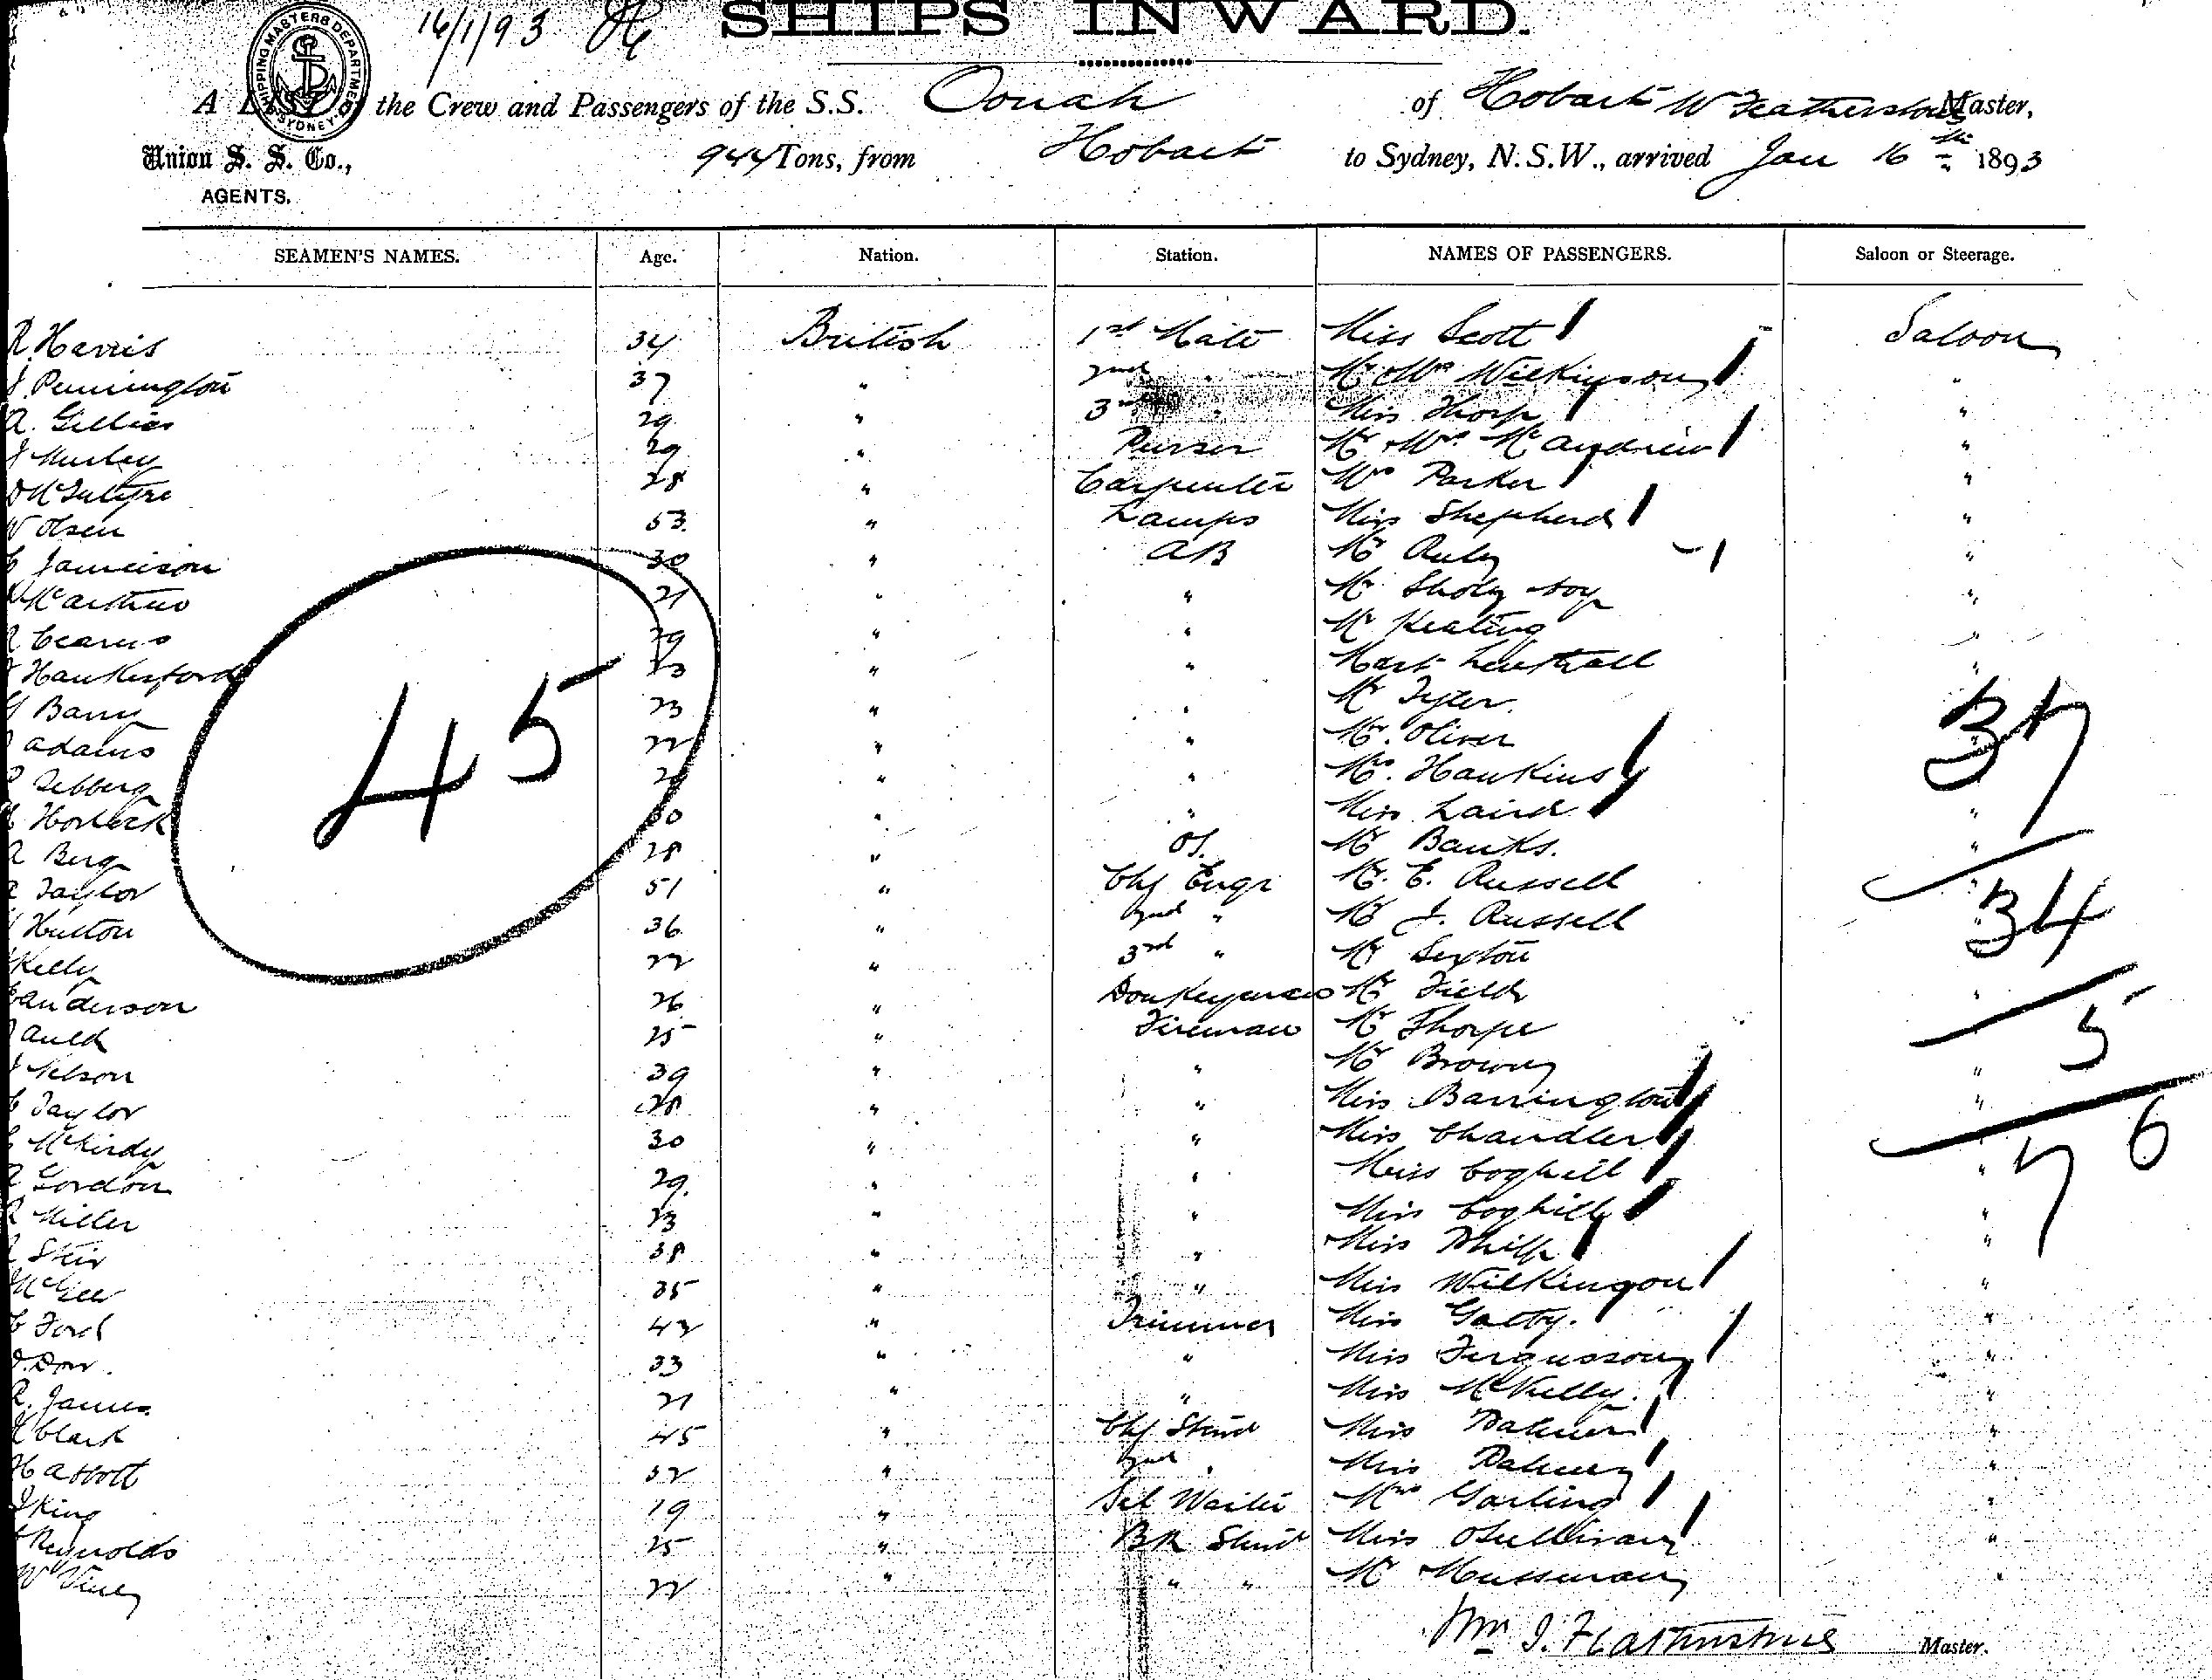 16/1/93
SHIPS INWARD.
SHIPPING MASTERS DEPARTMENT SYDNEY
A LIST of the Crew and Passengers of the S.S. Oonah of Hobart W Featherstone Master,
Union S. S. Co., AGENTS. 944 Tons, from Hobart to Sydney, N.S.W., arrived Jan 16th 1893
SEAMEN'S NAMES. Age. Nation. Station. NAMES OF PASSENGERS. Saloon or Steerage.
R. Harris 34 British 1st Mate Miss Scott Saloon
J. Pennington 37 " 2nd " Mr & Mrs Wilkinson "
A. Gillies 29 " 3rd " Miss Thorp "
J Murley 29 " Purser Mr & Mrs McAndrew "
D McIntyre 28 " Carpenter Mrs Parker "
W Olsen 53 " Lamps Miss Shepherd "
C Jamieson 30 " AB Mr "
McArthur 21 " " Mr boy "
29 " " Mr Keating "
Hankesford 23 " " Mast Lenthall "
Barry 23 " " Mr "
Adams 22 " " Mr. Oliver "
29 " " Mrs. Hawkins
30 " " Miss Laird "
Berg 28 " OS. Mr Banks. "
Taylor 51 " Chf Engr Mr. E. Russell "
Hutton 36 " 2nd " Mr J. Russell
Kelly 22 " 3rd " Mr Sexton
Anderson 26 " Donkeyman Mr Field "
Auld 25 " Fireman Mr Thorpe "
Nelson 39 " " Mr Brown "
C Taylor 28 " " Miss Barrington "
McKirdy 30 " " Miss Chandler
Gordon 29. " " Miss Coghill "
Miller 23 " " Miss Coghill "
38 " " Miss Philp "
McGee 35 " " Miss Wilkinson "
C Ford 42 " Trimmer Miss Gatty. "
Dow. 33 " " Miss Fergusson "
R. James 21 " " Miss "
Clark 45 " Chf Stwd Miss "
H Abbott 32 " 2nd " Miss "
J King 19 " Sal Waiter Mrs Garling "
Reynolds 25 " BR Stwd Miss OSullivan "
W Viney 22 " " " Mr Mussman "
45
37
34
5
76
Wm J. Featherstone Master.